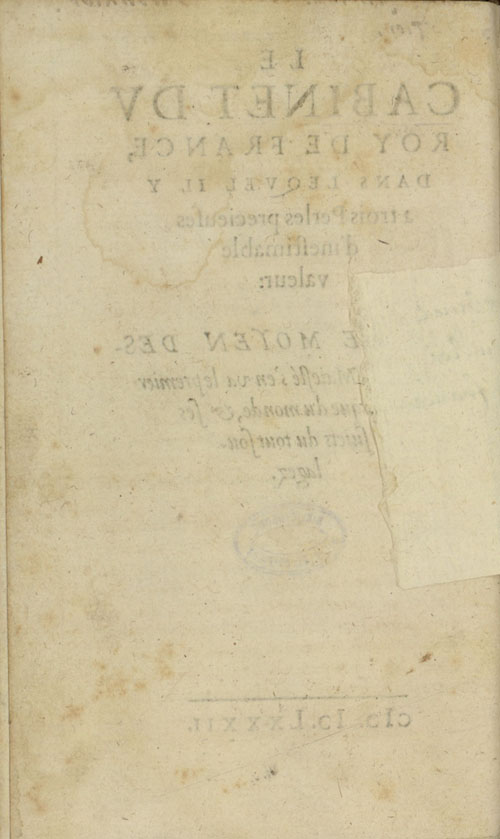 LE
CABINET DV
ROY DE FRANCE,
DANS LEQVEL IL Y
a trois Perles precieuſes
d'ineſtimable
valeur:
E MOYEN DES-
Maieſté s'en va le premier
du monde, & ſes
ſuiets du tout ſou-
lagez.
cIɔ. Iɔ. LXXXII.